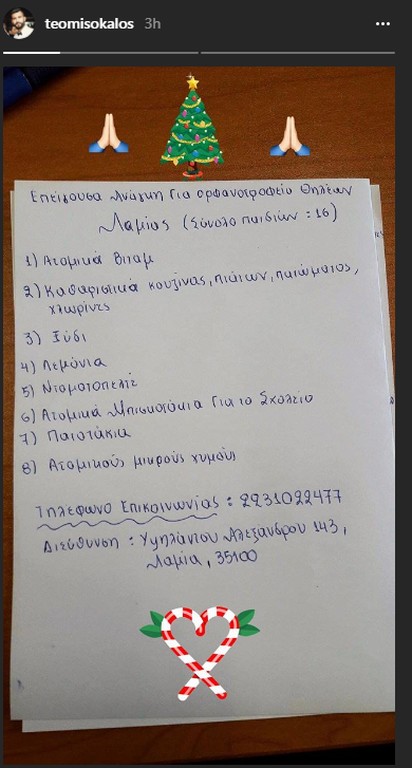 teomisokalos 3h
Επείγουσα Ανάγκη Για ορφανοτροφείο Θηλέων
Λαμίας (Σύνολο παιδιών : 16)
1) Ατομικά βιταμ
2) Καθαριστικά κουζίνας, πιάτων, πατώματος,
χλωρίνες
3) Ξύδι
4) Λεμόνια
5) Ντοματοπελτέ
6) Ατομικά Μπισκοτάκια Για το Σχολείο
7) Παστάκια
8) Ατομικούς μικρούς χυμούς
Τηλέφωνο Επικοινωνίας : 2231022477
Διεύθυνση : Υψηλάντου Αλεξάνδρου 143,
Λαμία, 35100